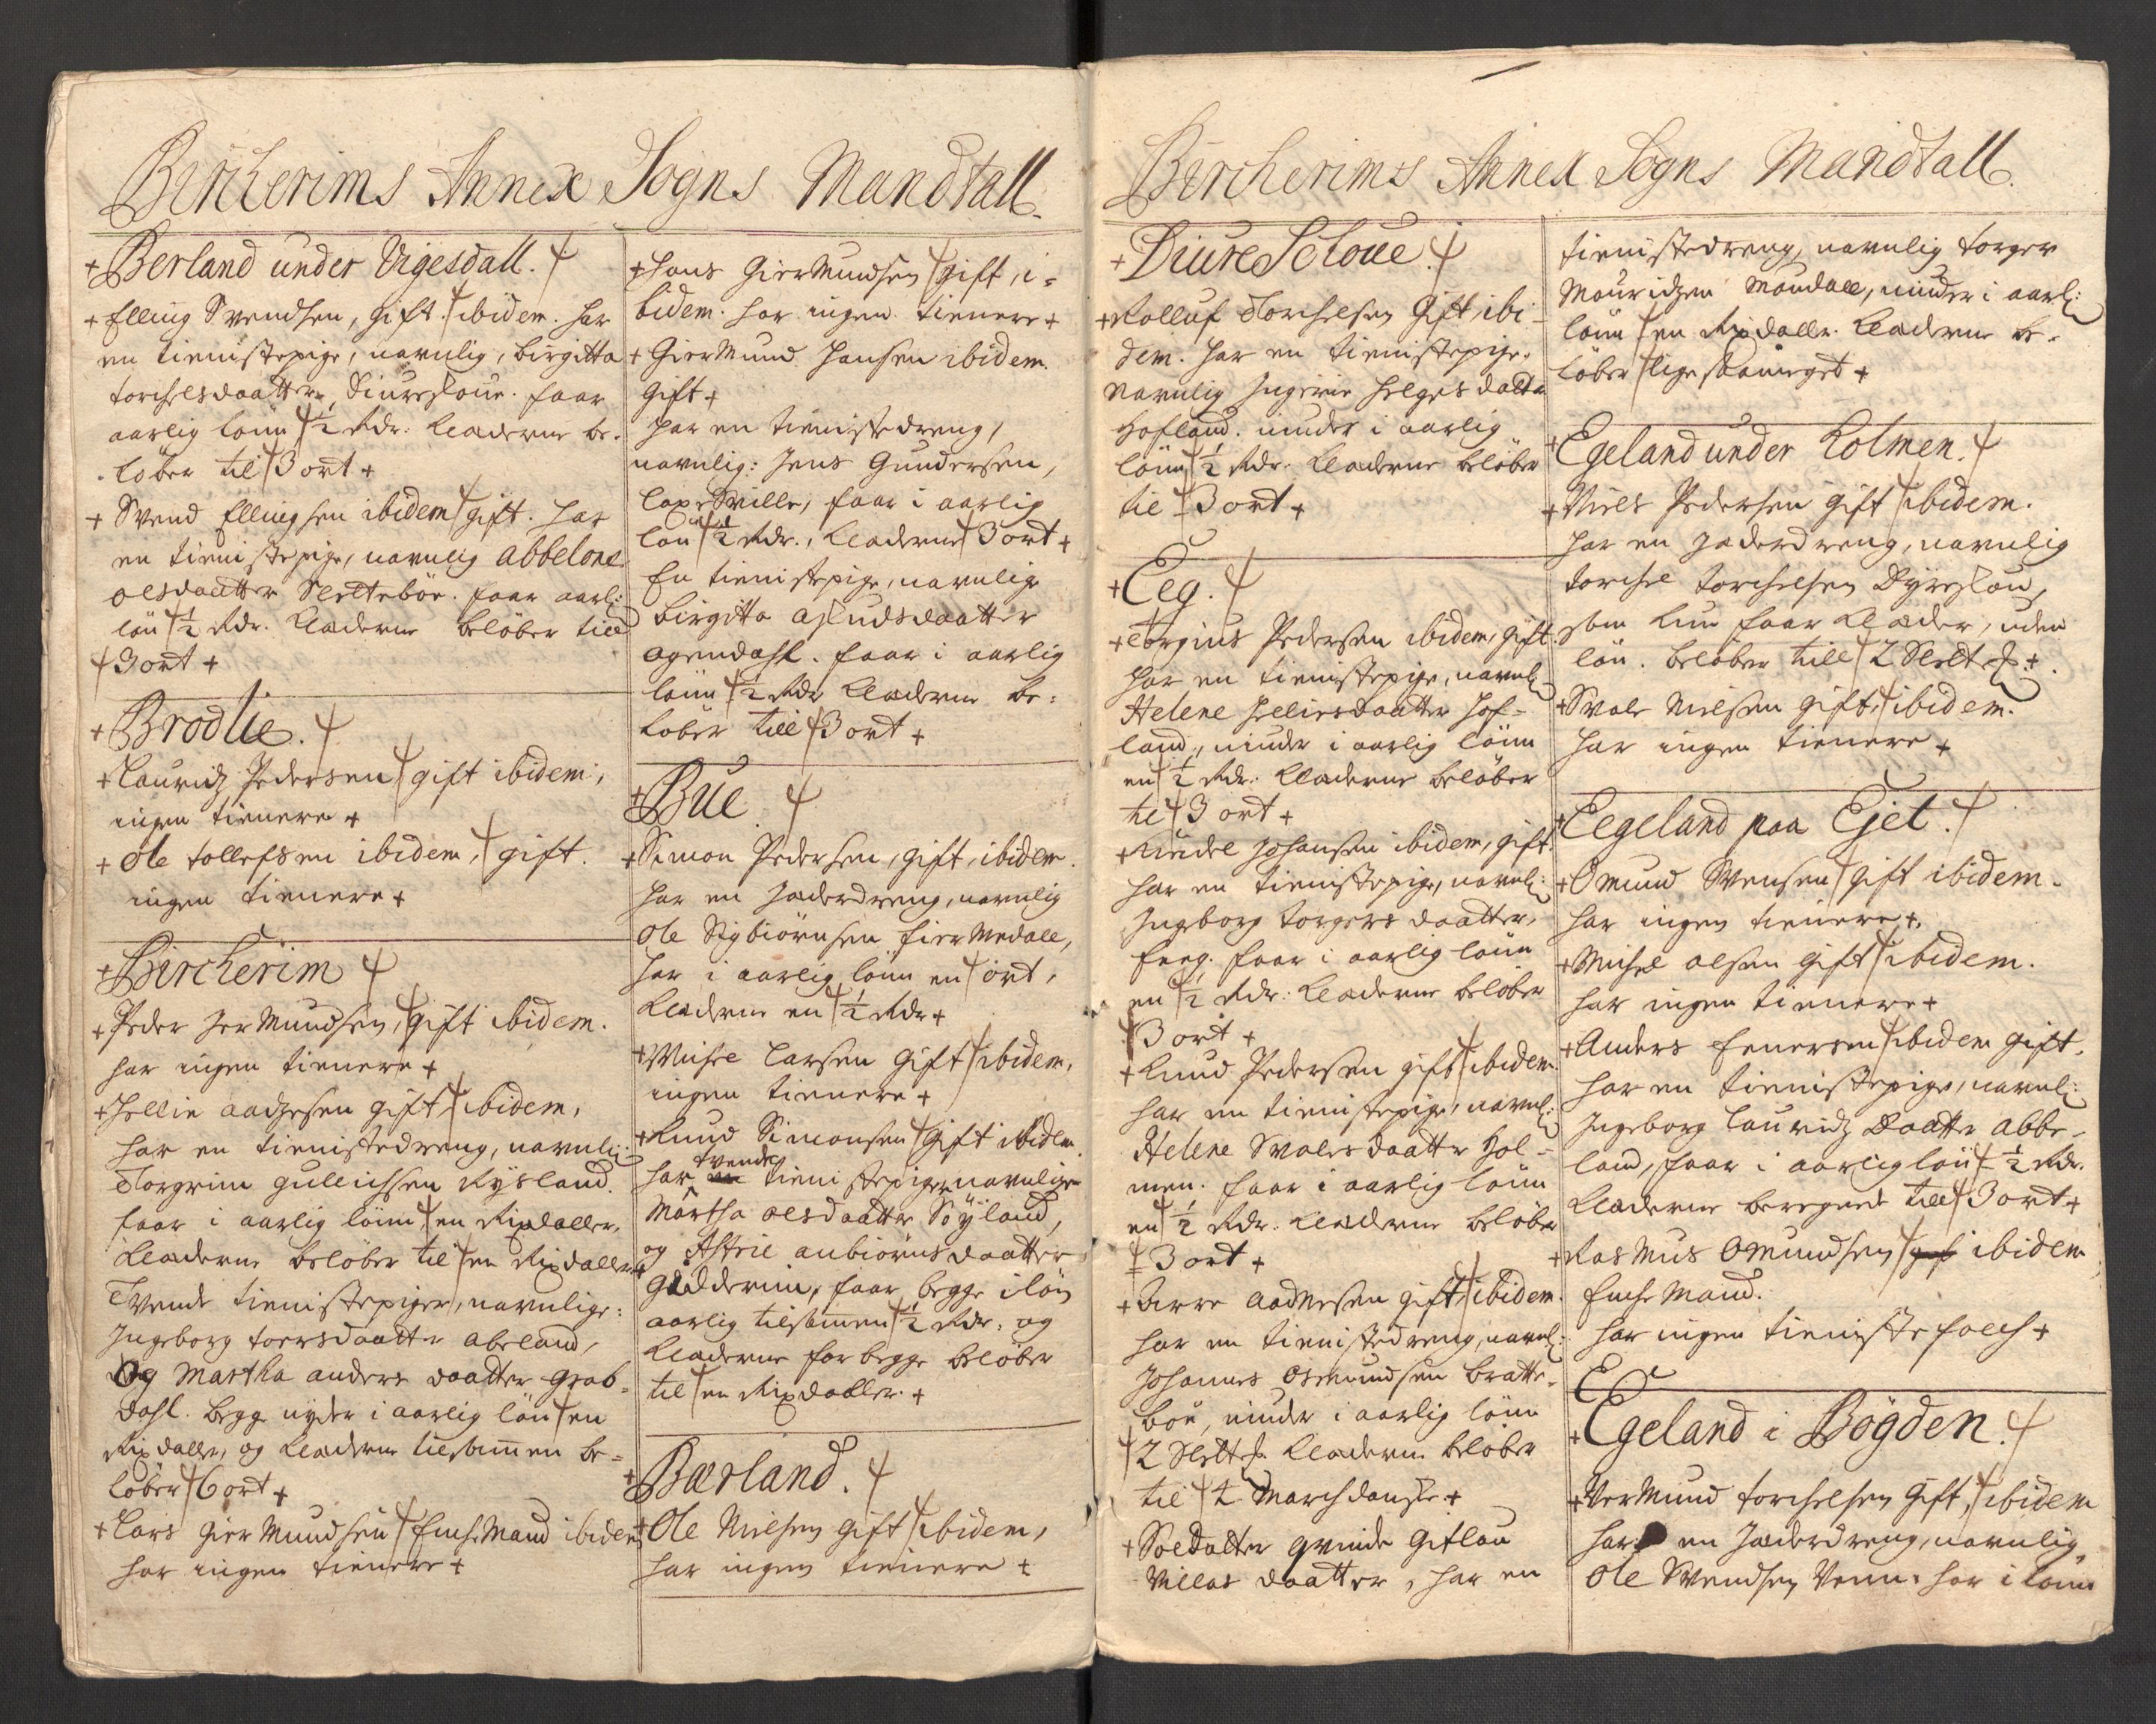 Bircherims Annex Sogns Mandtall.
+ Berland under Vigesdall.
+ Elling Svendsen, gift. ibidem. har
en tienistepige, navnlig, birgitta
torchelsdaatter, Diureskoue. faar
aarlig lönn ½ Rdr: Klæderne be-
löber til 3 ort +
+ Svend Ellingsen ibidem gift. har
en tienistepige, navnlig abbelone
olsdaatter Sletteböe. faar aarl:
lön ½ Rdr. Klæderne belöber till
3 ort +
+ Brodlie.
+ Lauridz Pedersen gift ibidem,
ingen tienere +
+ Ole tollefsen ibidem, gift.
ingen tienere +
+ Bircherim
+ Peder Jermundsen, gift ibidem.
har ingen tienere +
+ Hellie aadzesen gift ibidem,
har en tienistedreng, navnlig:
Torgrim gullichsen Rysland.
faar i aarlig lönn en Rixdaller,
Klæderne belöber til en Rixdaller
Tvende tienistepiger, navnlige:
Ingeborg toersdaatter abeland,
Og Martha anders daatter grab-
dahl. begge nyder i aarlig lön en
Rixdaller, og Klæderne tilsamen be-
löber 6 ort +
+ Lars Giermundsen Enchemand ibidem
har ingen tienere +
+ Hans Giermundsen gift, i-
bidem. har ingen tienere +
+ Giermund Hansen ibidem.
gift +
har en tienistedreng,
navnlig: Jens Gundersen,
Laxesville, faar i aarlig
lön ½ Rdr., Klæderne 3 ort +
En tienistepige, navnlige
birgitta asludsdaatter
ogendahl. faar i aarlig
lönn ½ Rdr Klæderne be-
löber till 3 ort +
+ Bue
+ Simon Pedersen, gift, ibidem.
har en Jaderdreng, navnlig
Ole Sigbiörnsen fiermedall,
har i aarlig lönn en ort,
Klæderne en ½ Rdr +
+ Michel Larsen Gift ibidem,
ingen tienere +
+ Knud Simonsen gift ibidem
har tvende tienistepiger navnlige
Martha olsdaatter Söyland,
og Astrie anbiörnsdaatter
Gydderim, faar begge i lön
aarlig tilsamen ½ Rdr. og
Klæderne for begge belöber
til en Rixdaller. +
+ Bærland.
+ Ole Nielsen gift ibidem,
har ingen tienere +
Bircherims Annex Sogns Mandtall.
+ Diure Schoue
+ Rolluf Torchelsen Gift, ibi-
dem. har en tienistepige.
Navnlig Ingerie helgesdatter
Hofland. niuder i aarlig
lönn ½ Rdr. Klæderne belöber
til 3 ort +
+ Eeg.
+ Torgius Pedersen ibidem, gift
har en tienistepige, navnl:
Helene Helliesdaatter Hof-
land, niuder i aarlig lönn
en ½ Rdr. Klæderne belöber
til 3 ort +
+ Rendel Johansen ibidem, gift.
har en tienistepige, navnl:
Ingeborg torgersdaatter,
Eeeg. faar i aarlig lönn
en ½ Rdr: Klæderne belöber
3 ort +
+ Knud Pedersen gift ibidem.
har en tienistepige, navnl:
Helene Svalesdaatter Hol-
men. faar i aarlig lönn
en ½ Rdr. Klæderne belöber
3 ort +
+ Arre aadnesen gift ibidem.
har en tienistedreng, navnl:
Johannes Osmundsen bratte-
böe, niuder i aarlig lönn
2 Slettd. Klæderne belöber
til 4 March danske +
+ Soldatter qvinde Gitlau
Villas daatter, har en
tienistedreng, navnlig torger
Mouridzen Moudall, niuder i aarl:
lönn en Rixdaller. Klæderne be-
löber lige saameget +
+ Egeland under Holmen.
+ Niels Pedersen gift ibidem.
har en Jaderdreng, navnlig
torchel torchelsen Dyreskou,
som kun faar Klæder, uden
lön. belöber till 2 Slettd: +
+ Svale Nielsen gift, ibidem.
har ingen tienere +
+ Eegeland paa Ejet.
+ Omund Svensen gift ibidem.
har ingen tienere +
+ Michel olsen gift ibidem.
har ingen tienere +
+ Anders Enersen ibidem gift.
har en tienistepige, navnl:
Ingeborg Lauridz daatter abbe-
land, faar i aarlig lön ½ Rdr.
Klæderne beregnet till 3 ort +
+ Rasmus Omundsen ibidem
Enchemand.
har ingen tienistefolch +
+ Egeland i Bögden.
+ Vermund torchelsen gift, ibidem
har en Jaderdreng, navnlig,
Ole Svendsen Venn. har i lönn